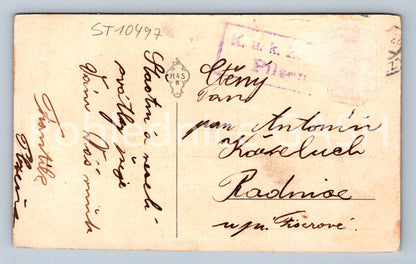 ST10497
K. u. k.
Pilsen
H&S
B
Šťastné a vesel
svátky přeje
Vám Váš
František
Ctěný
Pan
pan Antonín
Koželuch
Radnice
u p. Fišerové